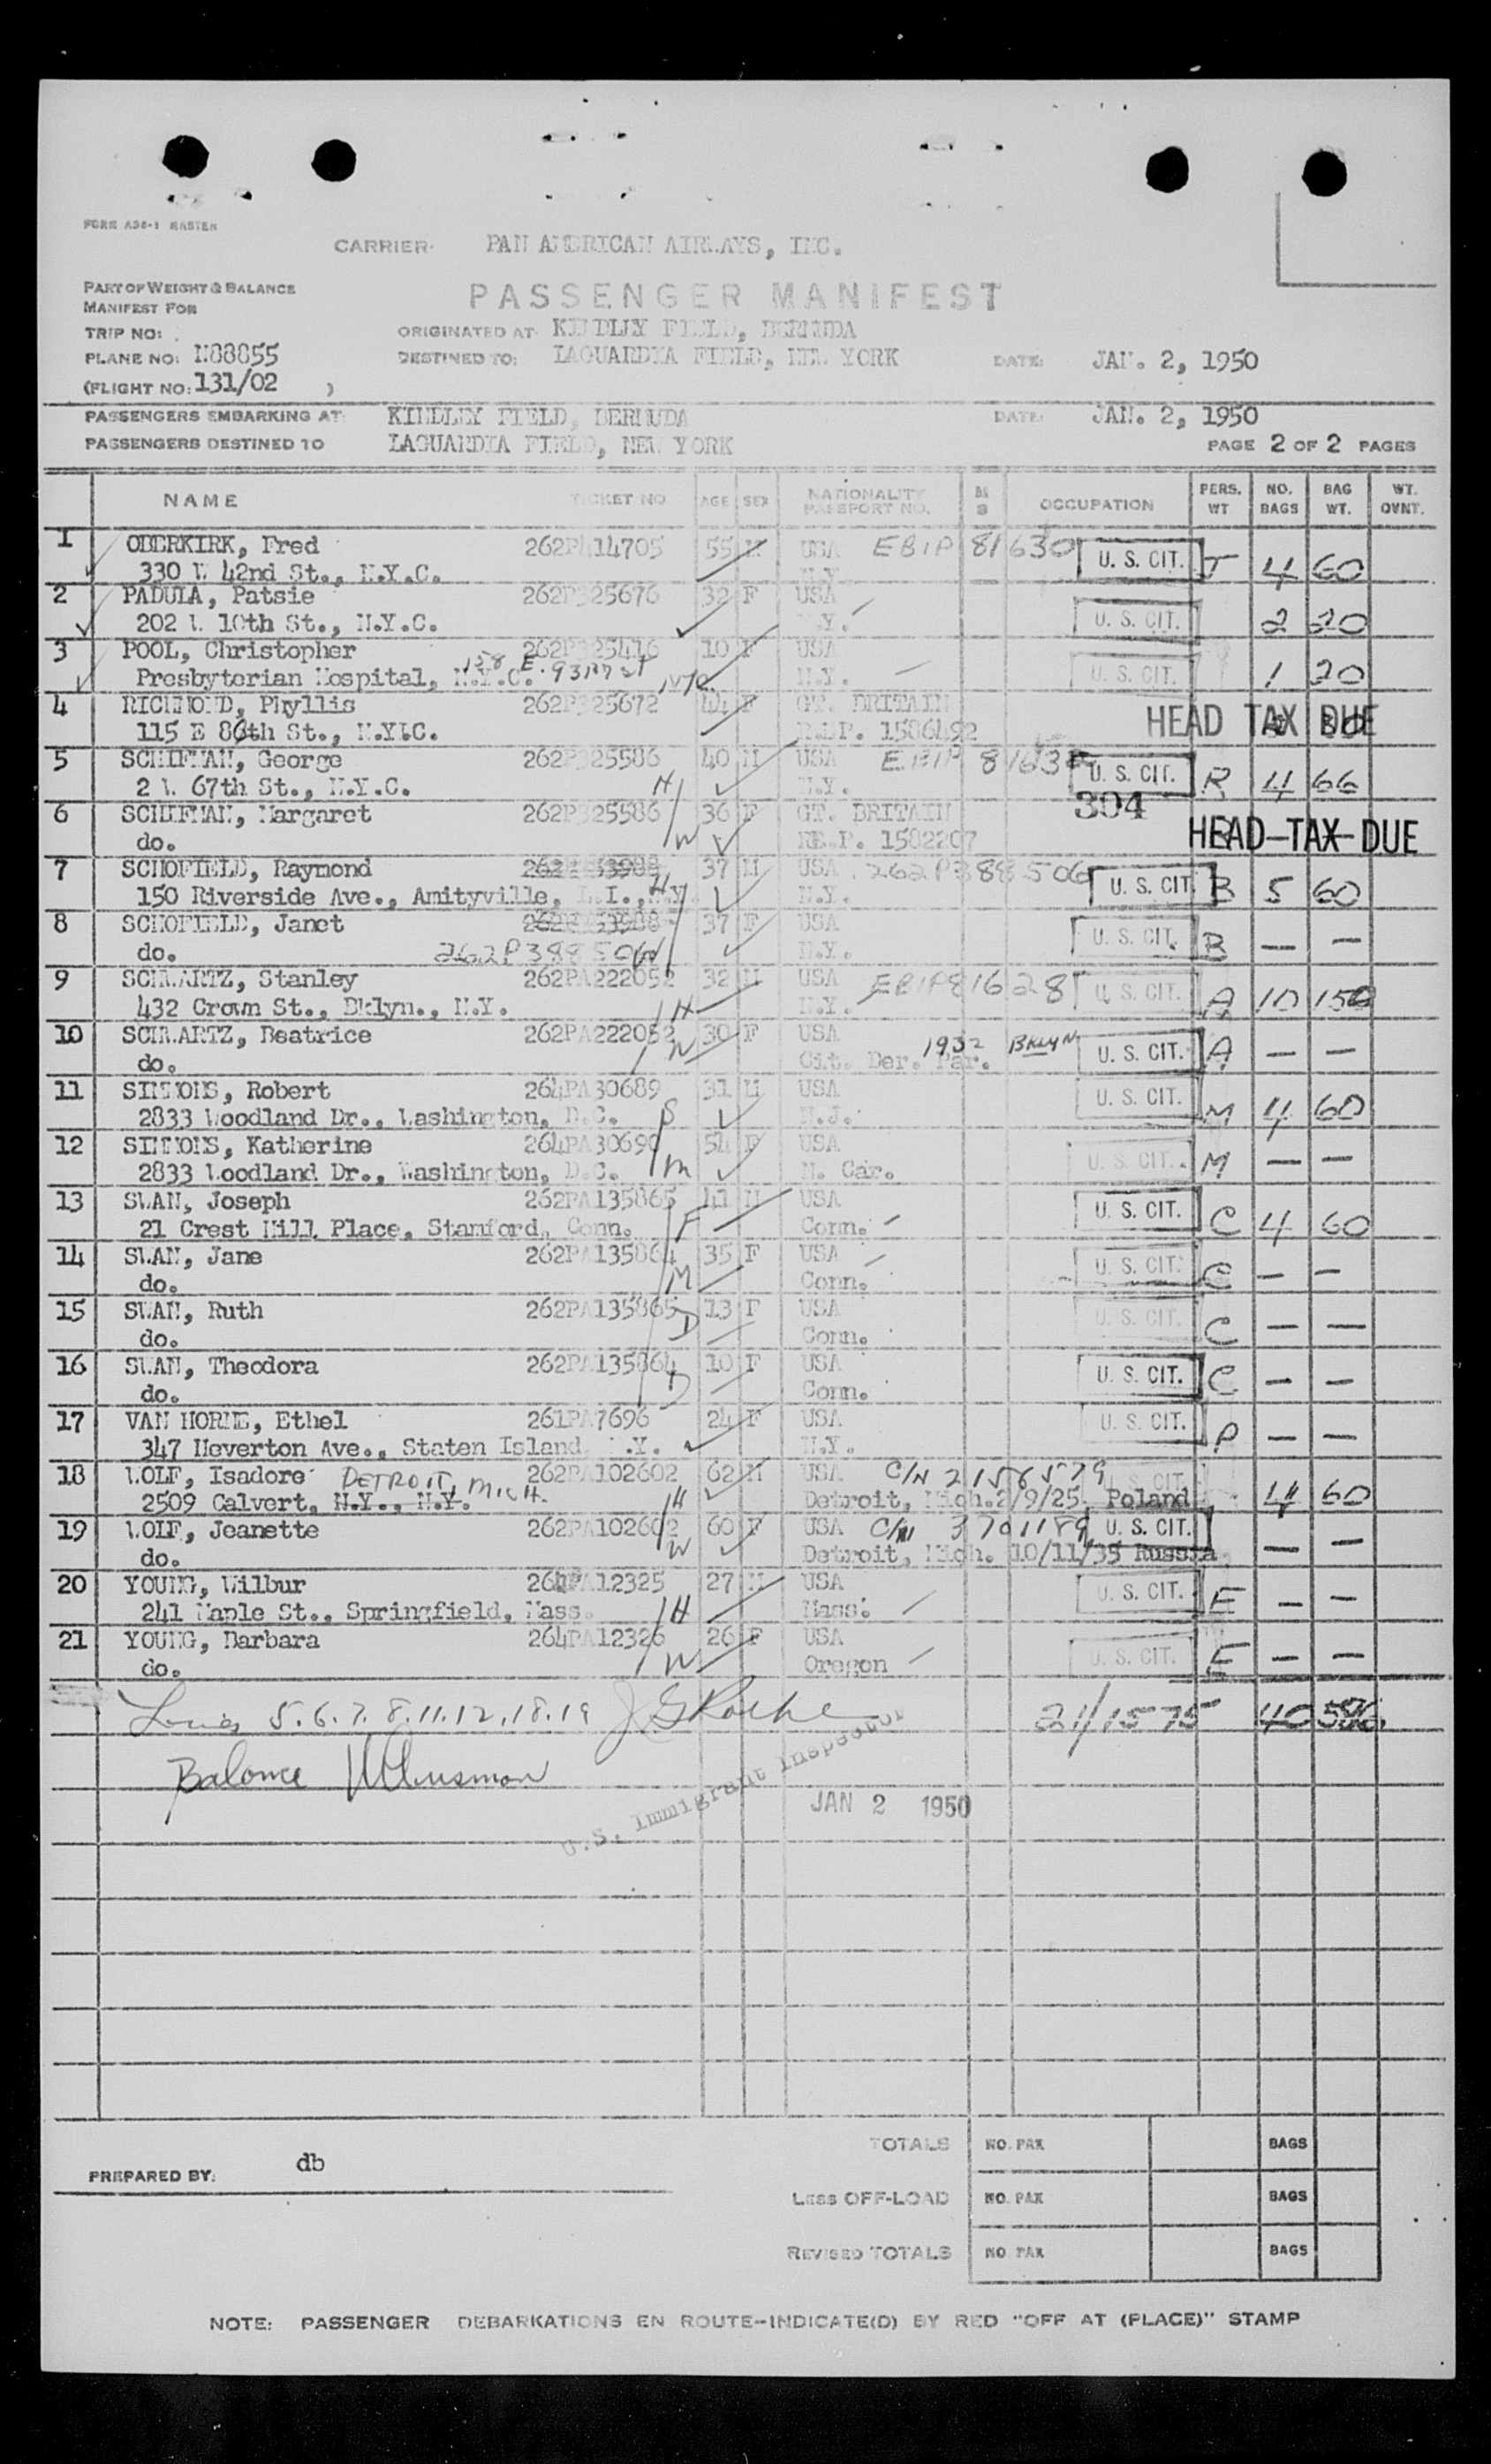 FORM A36-1 MASTER
CARRIER: PAN AMERICAN AIRWAYS, INC.
PART OF WEIGHT & BALANCE
MANIFEST FOR
PASSENGER MANIFEST
TRIP NO:
ORIGINATED AT KINDLEY FIELD, BERMUDA
PLANE NO: N88855
DESTINED TO: LAGUARDIA FIELD, NEW YORK DATE: JAN. 2, 1950
(FLIGHT NO: 131/02 )
PASSENGERS EMBARKING AT KINDLEY FIELD, BERMUDA DATE: JAN. 2, 1950
PASSENGERS DESTINED TO LAGUARDIA FIELD, NEW YORK PAGE 2 OF 2 PAGES
NAME TICKET NO AGE SEX NATIONALITY PASSPORT NO. OCCUPATION PERS. WT NO. BAGS BAG WT. WT. OVNT.
1 ODERKIRK, Fred 262P414705 55 M USA EBIP 81630 U. S. CIT. T 4 60
330 W 42nd St., N.Y.C. N.Y.
2 PADULA, Patsie 262P325676 32 F USA
202 W. 10th St., N.Y.C. N.Y. U. S. CIT. 2 20
3 POOL, Christopher 262P325416 10 F USA
Presbyterian Hospital, N.Y.C. 158 E. 93RD ST NYC N.Y. U. S. CIT. 1 20
4 RICHMOND, Phyllis 262P325672 44 F GT. BRITAIN
115 E 86th St., N.Y.C. 1586492 HEAD TAX DUE
5 SCHIFMAN, George 262P325586 40 M USA EBIP 8163
2 W. 67th St., N.Y.C. H N.Y. U. S. CIT. R 4 66
6 SCHIFMAN, Margaret 262P325586 36 F GT. BRITAIN 304
do. W 1582207 HEAD TAX DUE
7 SCHOFIELD, Raymond 37 M USA 262P388506
150 Riverside Ave., Amityville, L.I., N.Y. H N.Y. U. S. CIT. B 5 60
8 SCHOFIELD, Janet 37 F USA
do. 262P388506 W N.Y. U. S. CIT. B — —
9 SCHWARTZ, Stanley 262PA222052 32 M USA EBIP81628
432 Crown St., Bklyn., N.Y. H N.Y. U. S. CIT. A 10 150
10 SCHWARTZ, Beatrice 262PA222052 30 F USA
do. W Cit. Der. Par. 1932 BKLYN U. S. CIT. A — —
11 SIMMONS, Robert 264PA30689 31 M USA
2833 Woodland Dr., Washington, D.C. S N.J. U. S. CIT. M 4 60
12 SIMMONS, Katherine 264PA30690 54 F USA
2833 Woodland Dr., Washington, D.C. M N. Car. U. S. CIT. M — —
13 SWAN, Joseph 262PA135865 41 M USA
21 Crest Hill Place, Stamford, Conn. F Conn. U. S. CIT. C 4 60
14 SWAN, Jane 262PA135864 35 F USA
do. M Conn. U. S. CIT. C — —
15 SWAN, Ruth 262PA135865 13 F USA
do. D Conn. U. S. CIT. C — —
16 SWAN, Theodora 262PA135864 10 F USA
do. D Conn. U. S. CIT. C — —
17 VAN HORNE, Ethel 261PA7696 24 F USA
347 Heverton Ave., Staten Island N.Y. N.Y. U. S. CIT. P — —
18 WOLF, Isadore 262PA102602 62 M USA C/N 2156579
2509 Calvert, N.Y., N.Y. DETROIT, MICH. H Detroit, Mich. 2/9/25 Poland U. S. CIT. 4 60
19 WOLF, Jeanette 262PA102602 60 F USA C/N 3701189 U. S. CIT.
do. W Detroit, Mich. 10/11/35 Russia — —
20 YOUNG, Wilbur 264PA12325 27 M USA
241 Maple St., Springfield, Mass. H Mass. U. S. CIT. E — —
21 YOUNG, Barbara 264PA12326 26 F USA
do. W Oregon U. S. CIT. E — —
5. 6. 7. 8. 11. 12. 18. 19 21/1575 40
Balance
U.S. Immigrant Inspector
JAN 2 1950
TOTALS NO. PAX BAGS
PREPARED BY: db
LESS OFF-LOAD NO. PAX BAGS
REVISED TOTALS NO. PAX BAGS
NOTE: PASSENGER DEBARKATIONS EN ROUTE-INDICATE(D) BY RED "OFF AT (PLACE)" STAMP